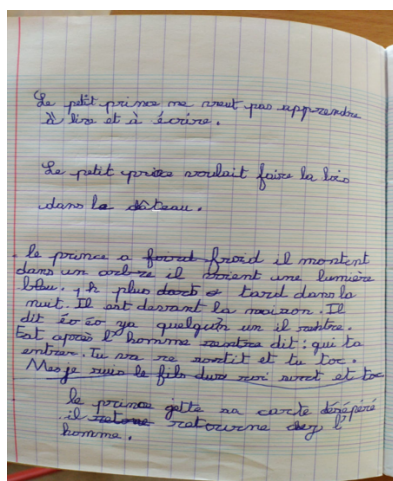 Le petit prince ne veut pas apprendre
à lire et à écrire.
Le petit prince voulait faire la lois
dans le château.
le prince a froid il montent
dans un arbre il voient une lumière
bleu. 1h plus tard dans la
nuit. Il est devant la maison. Il
dit éo éo ya quelqu'un il rentre.
Eat après l'homme rentre dit : qui ta
entrer. Tu va re sortit et tu toc.
Mes je suis le fils du roi sort et toc
le prince jette sa carte désépéré
il retourne chez l'
homme.